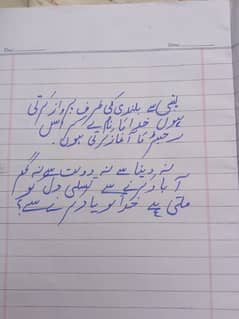 Day:
Date:
پستی سے بلندی کی طرف پرواز کرتی
ہوں خدا کا نام لے کر اس
رحیم کا آغاز کرتی ہوں۔
نہ دنیا سے نہ دولت سے نہ گھر
آباد کرنے سے تسلی دل کو
ملتی ہے خدا کو یاد کرنے سے؟